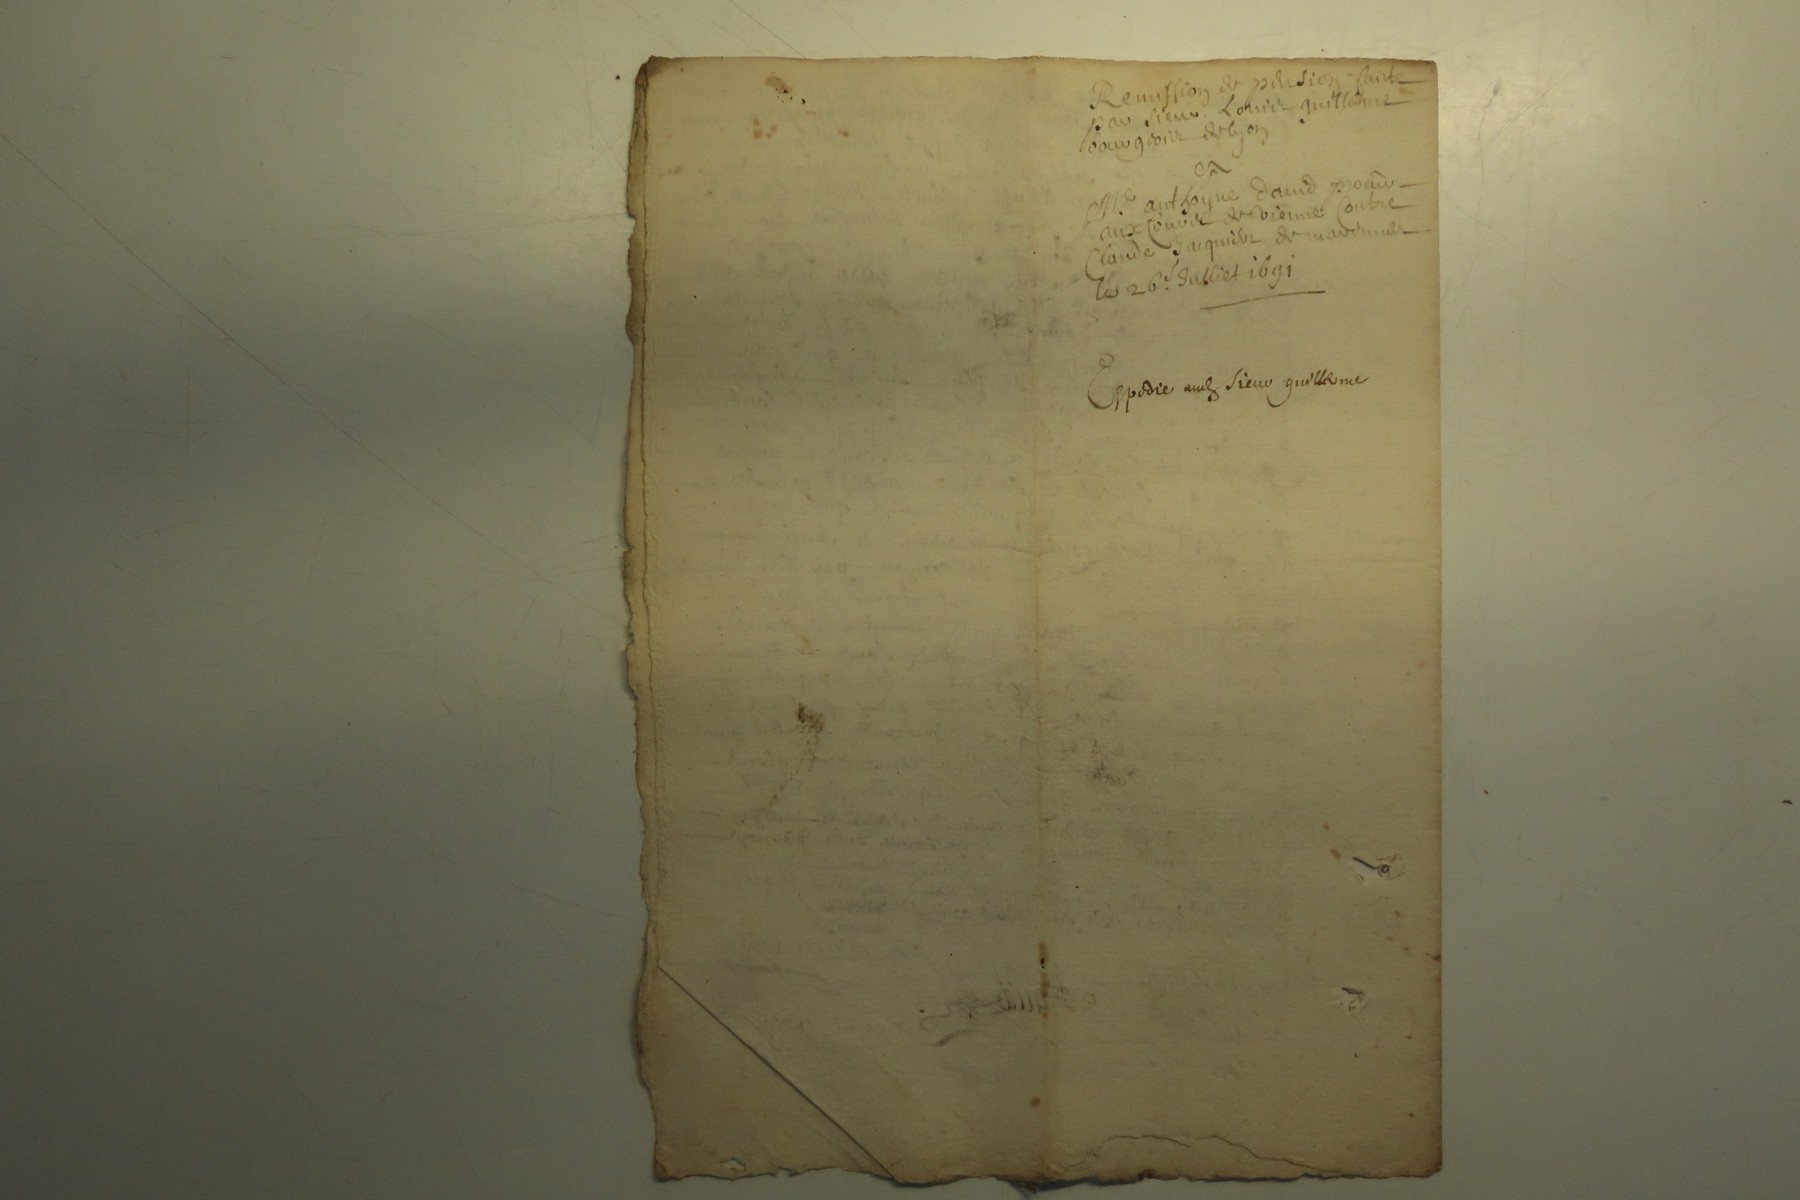 Remission de pension faite
par sieur Louis guillerme
bourgeois de lyon
a
Me anthoyne david procur
aux Cours de vienne Contre
Claude Jacquier de
le 26e Juilliet 1691
Expedie audt sieur guillerme